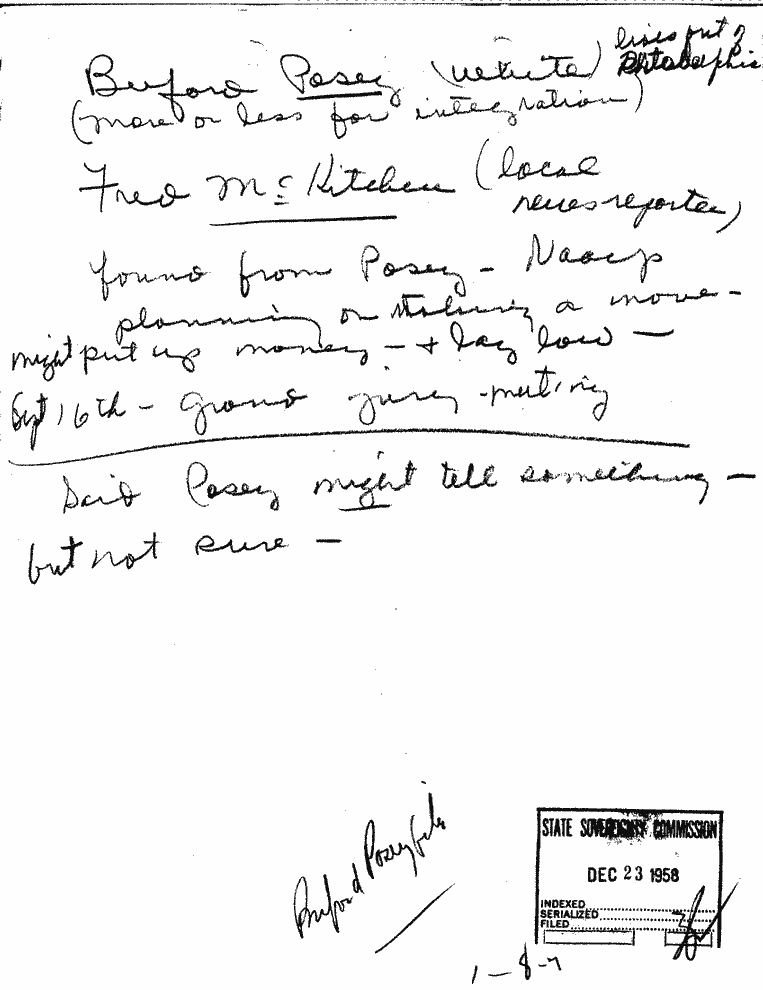 Buford Posey (white) lives out of Philadelphia
(more or less for integration)
Fred McKitchen (local
news reporter)
found from Posey - Naacp
planning on a move -
might put up money - + lay low -
Sept 16th - Grand jury meeting
Said Posey might tell something -
but not sure -
Buford Posey file
STATE SOVEREIGNTY COMMISSION
DEC 23 1958
INDEXED
SERIALIZED
FILED
1-8-7